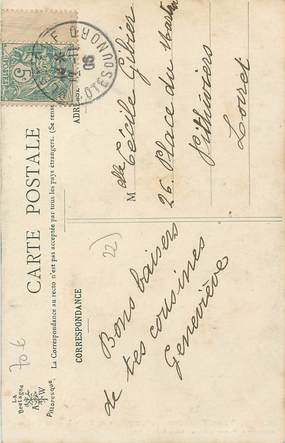 CARTE POSTALE
La Correspondance au recto n'est pas acceptée par tous les pays étrangers. (Se rense
CORRESPONDANCE
ADRESSE
Bons baisers
de tes cousines
Geneviève
M lle Cécile Gibier
26. Place du Martroi
Pithiviers
Loiret
5
08
COTES-DU-NORD
22)
70 €
La
Bretagne
Pittoresque
A W